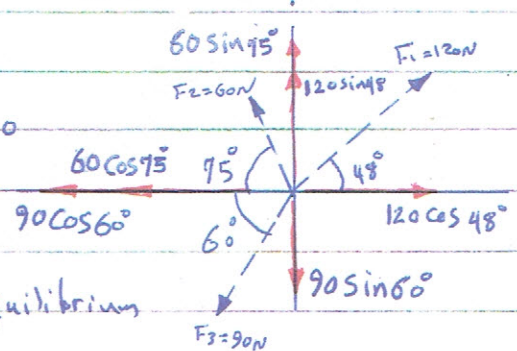 60 sin75°
F1=120N
F2=60N
120sin48
60 Cos75°
75°
48°
90Cos60°
60°
120 cos 48°
90 Sin60°
F3=90N